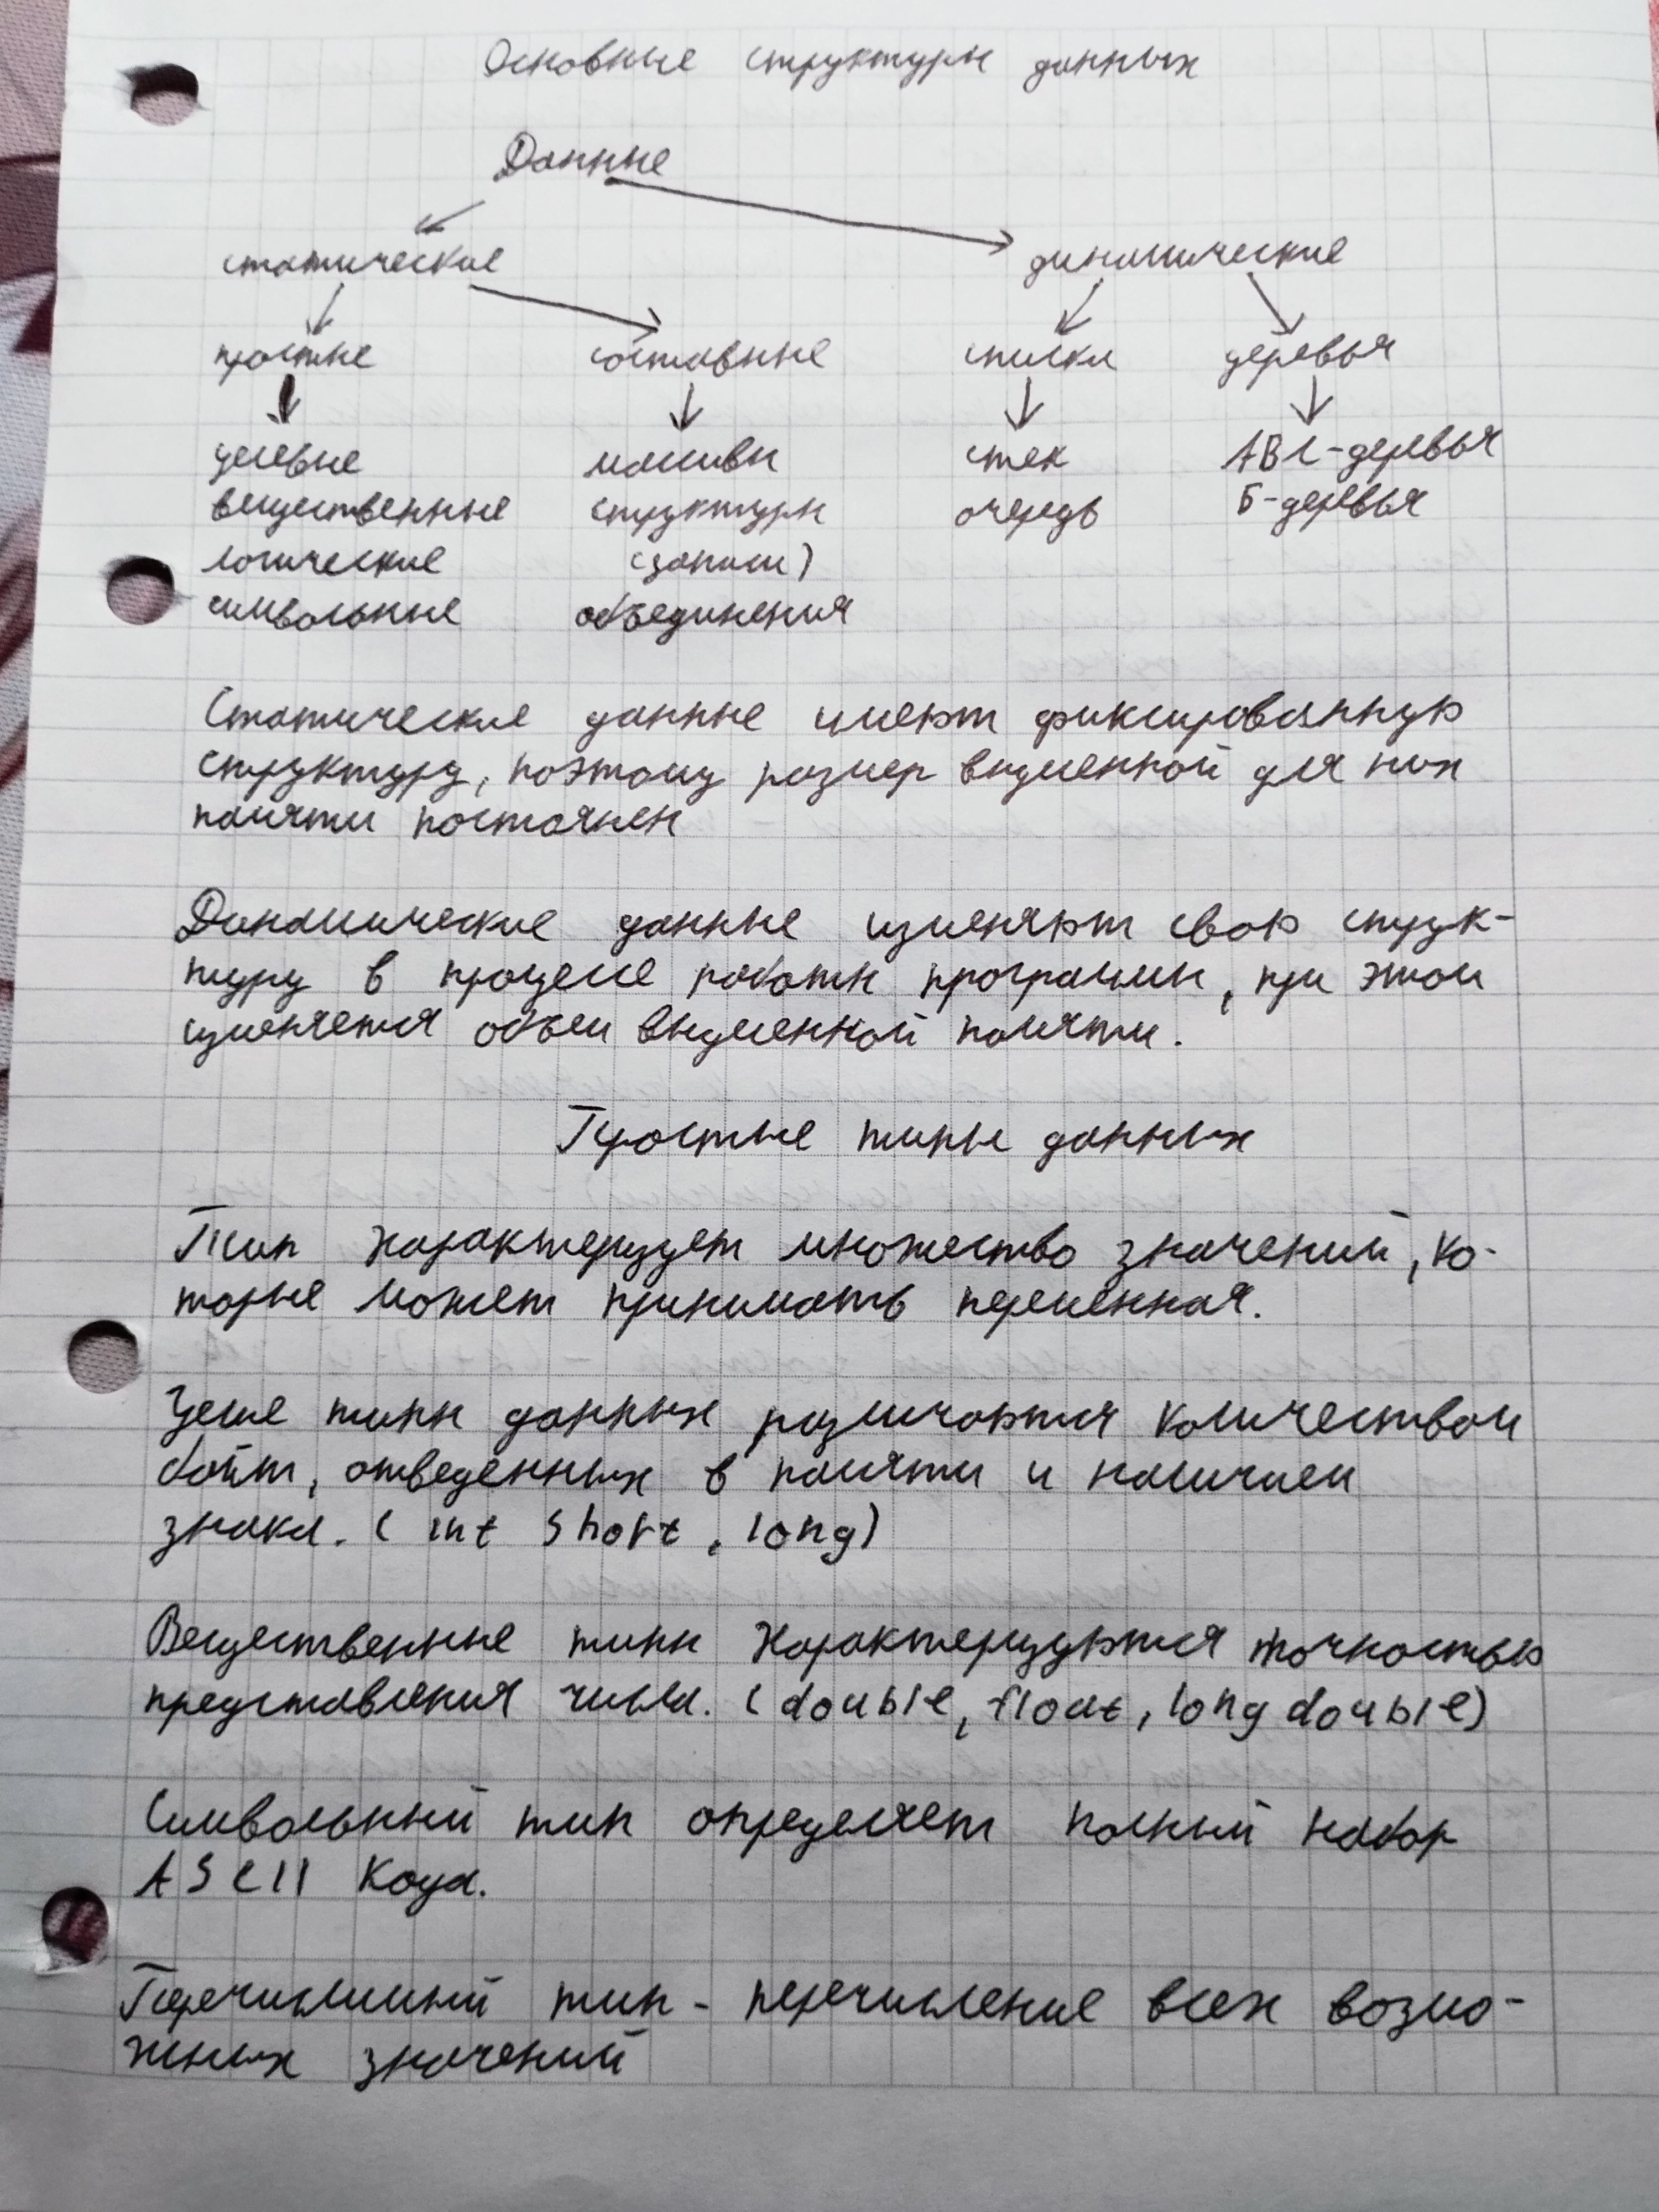 Основные структуры данных
Данные
статические динамические
простые составные списки деревья
целевые массивы стек АВЛ-деревья
вещественные структуры очередь Б-деревья
логические (записи)
символьные объединения
Статические данные имеют фиксированную
структуру, поэтому размер выделенной для них
памяти постоянен
Динамические данные изменяют свою струк-
туру в процессе работы программы, при этом
изменяется объем выделенной памяти.
Простые типы данных
Тип характеризует множество значений, ко-
торые может принимать переменная.
Целые типы данных различаются количеством
байт, отведенных в памяти и наличием
знака. (int short, long)
Вещественные типы характеризуются точностью
представления числа. (double, float, long double)
Символьный тип определяет полный набор
ASCII кода.
Перечислимый тип - перечисление всех возмо-
жных значений